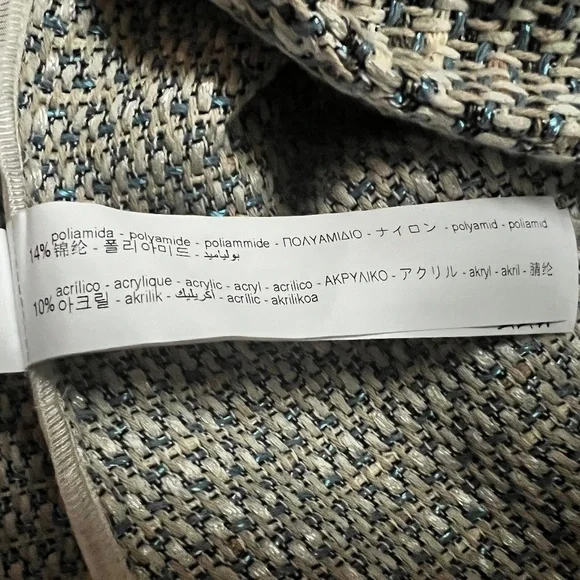 poliamida - polyamide - poliammide - ΠΟΛΥΑΜΙΔΙΟ - ナイロン - polyamid - poliamid
14% 锦纶 - 폴리아미드 - بوليأميد
acrilico - acrylique - acrylic - acryl - acrilico - ΑΚΡΥΛΙΚΟ - アクリル - akryl - akril - 腈纶
10% 아크릴 - akrilik - أكريليك - acrilic - akrilikoa